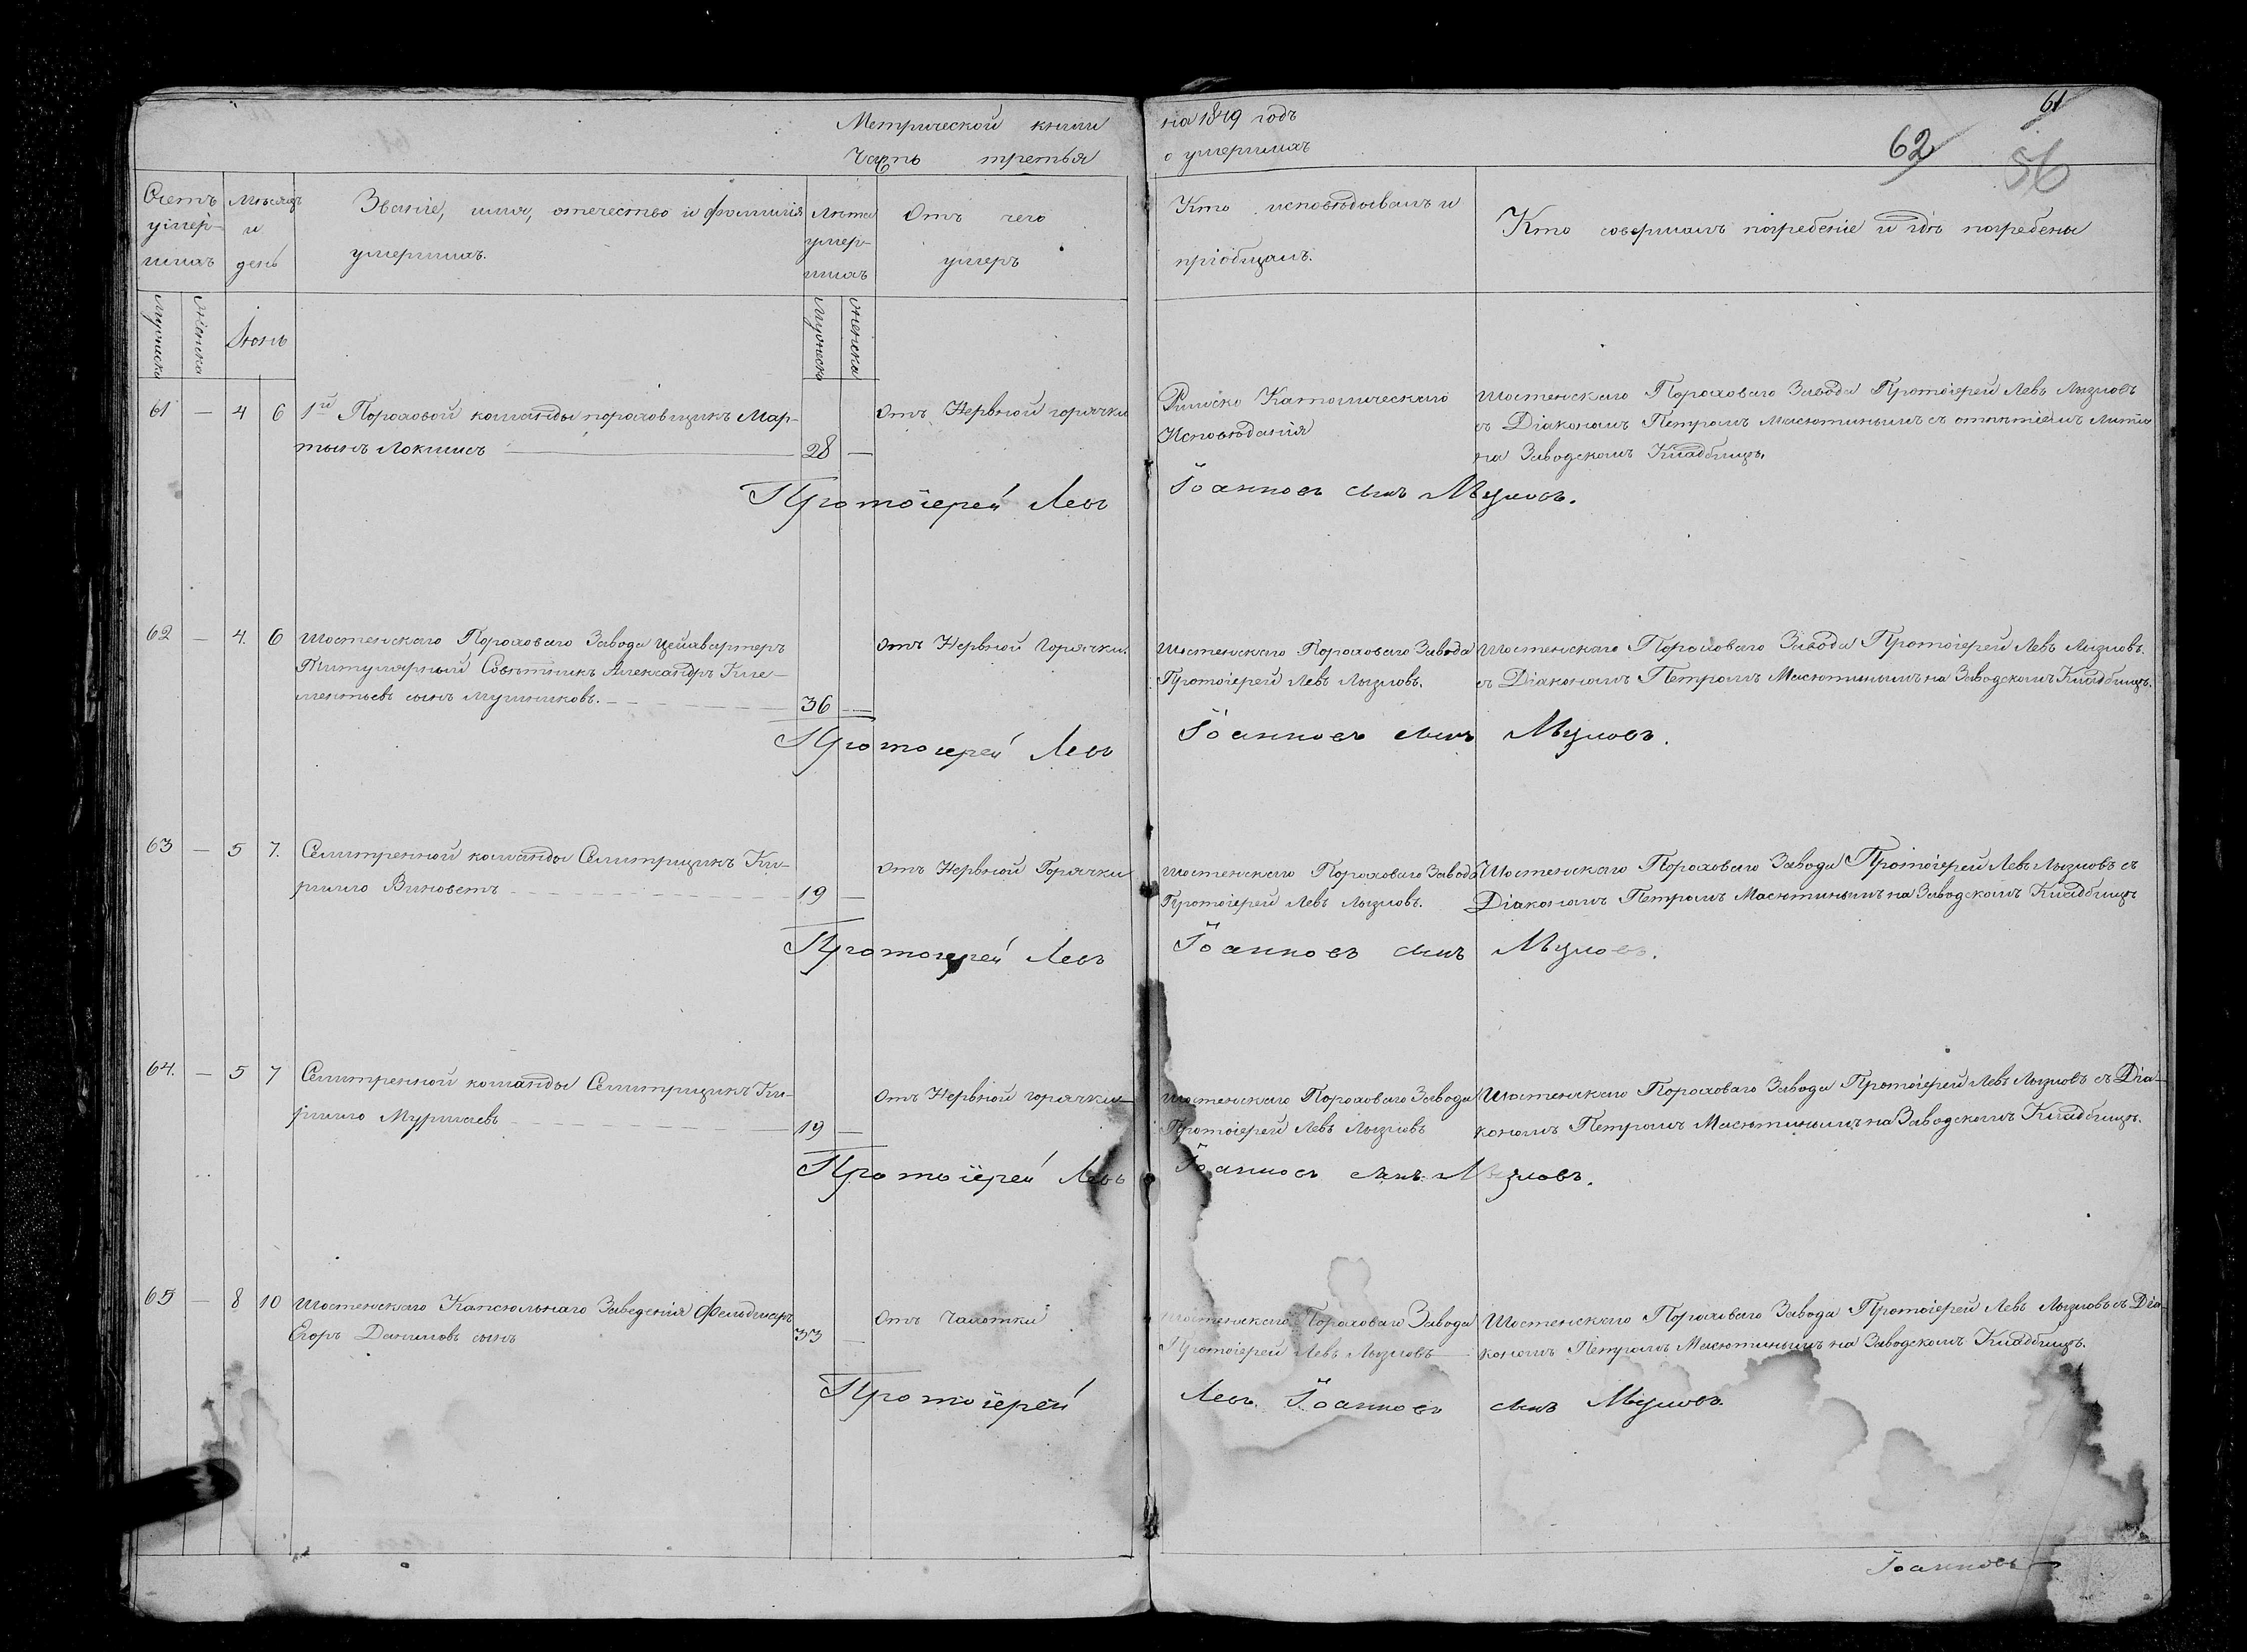 Метрической книги на 1849 годъ
Часть третья о умершихъ
61
62
56
Счетъ умер-шихъ
Мѣсяцъ и день
Званіе, имя, отечество и фамилія умершихъ.
Лѣта умер-шихъ
Отъ чего умеръ
Кто исповѣдывалъ и пріобщалъ.
Кто совершалъ погребеніе и гдѣ погребены
Мужеска
Женска
Іюнь
Мужеска
Женска
61 — 4 6
1й Пороховой команды пороховщикъ Мар-
тынъ
28 —
Отъ Нервной горячки
Римско Католическаго
Исповѣданія
Шостенскаго Пороховаго Завода Протоіерей Левъ Лызловъ
съ Діакономъ Петромъ Масютинымъ съ отпѣтіемъ Литіи
на Заводскомъ Кладбищѣ.
Протоіерей Левъ Іоанновъ сынъ Лызловъ.
62 — 4. 6
Шостенскаго Пороховаго Завода Цейхвартеръ
Титулярный Совѣтникъ Александръ Кле-
ментьевъ сынъ
36 —
Отъ Нервной Горячки.
Шостенскаго Пороховаго Завода
Протоіерей Левъ Лызловъ.
Шостенскаго Пороховаго Завода Протоіерей Левъ Лызловъ.
съ Діакономъ Петромъ Масютинымъ на Заводскомъ Кладбищѣ.
Протоіерей Левъ Іоанновъ сынъ Лызловъ.
63 — 5 7.
Селитренной команды Селитрщикъ Ки-
рилло
19 —
Отъ Нервной Горячки
Шостенскаго Пороховаго Завода
Протоіерей Левъ Лызловъ.
Шостенскаго Пороховаго Завода Протоіерей Левъ Лызловъ съ
Діакономъ Петромъ Масютинымъ на Заводскомъ Кладбищѣ
Протоіерей Левъ Іоанновъ сынъ Лызловъ.
64. — 5 7
Селитренной команды Селитрщикъ Ки-
рилло
19 —
Отъ Нервной горячки
Шостенскаго Пороховаго Завода
Протоіерей Левъ Лызловъ
Шостенскаго Пороховаго Завода Протоіерей Левъ Лызловъ съ Діа-
кономъ Петромъ Масютинымъ на Заводскомъ Кладбищѣ.
Протоіерей Левъ Іоанновъ сынъ Лызловъ.
65 — 8 10
Шостенскаго Капсюльнаго Заведенія Фельдшеръ
Егоръ Даниловъ сынъ
33 —
Отъ Чахотки
Шостенскаго Пороховаго Завода
Протоіерей Левъ Лызловъ
Шостенскаго Пороховаго Завода Протоіерей Левъ Лызловъ съ Діа-
кономъ Петромъ Масютинымъ на Заводскомъ Кладбищѣ.
Протоіерей Левъ Іоанновъ сынъ Лызловъ.
Іоанновъ